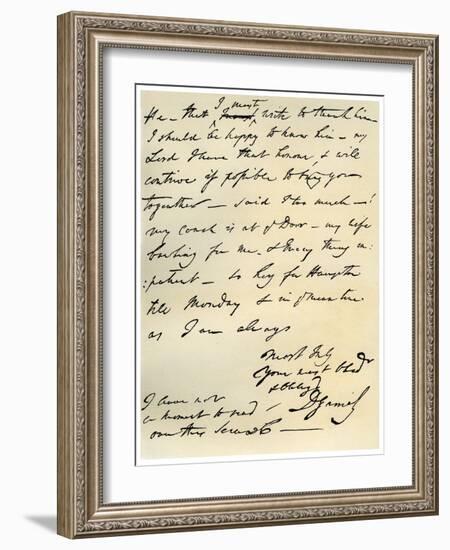 He – that I must write to thank him –
I should be happy to know him – my
Lord I have that honour, & will
contrive if possible to bring you
together – said I too much – !
my coach is at ye Door – my wife
bawling for me – & Every thing im
:patient – so Hey for Hampton
till Monday & in ye mean time
as I am always
Most truly
Your most Obedr
& Obligd
D Garrick
I have not
a moment to read
over this Scrawl –